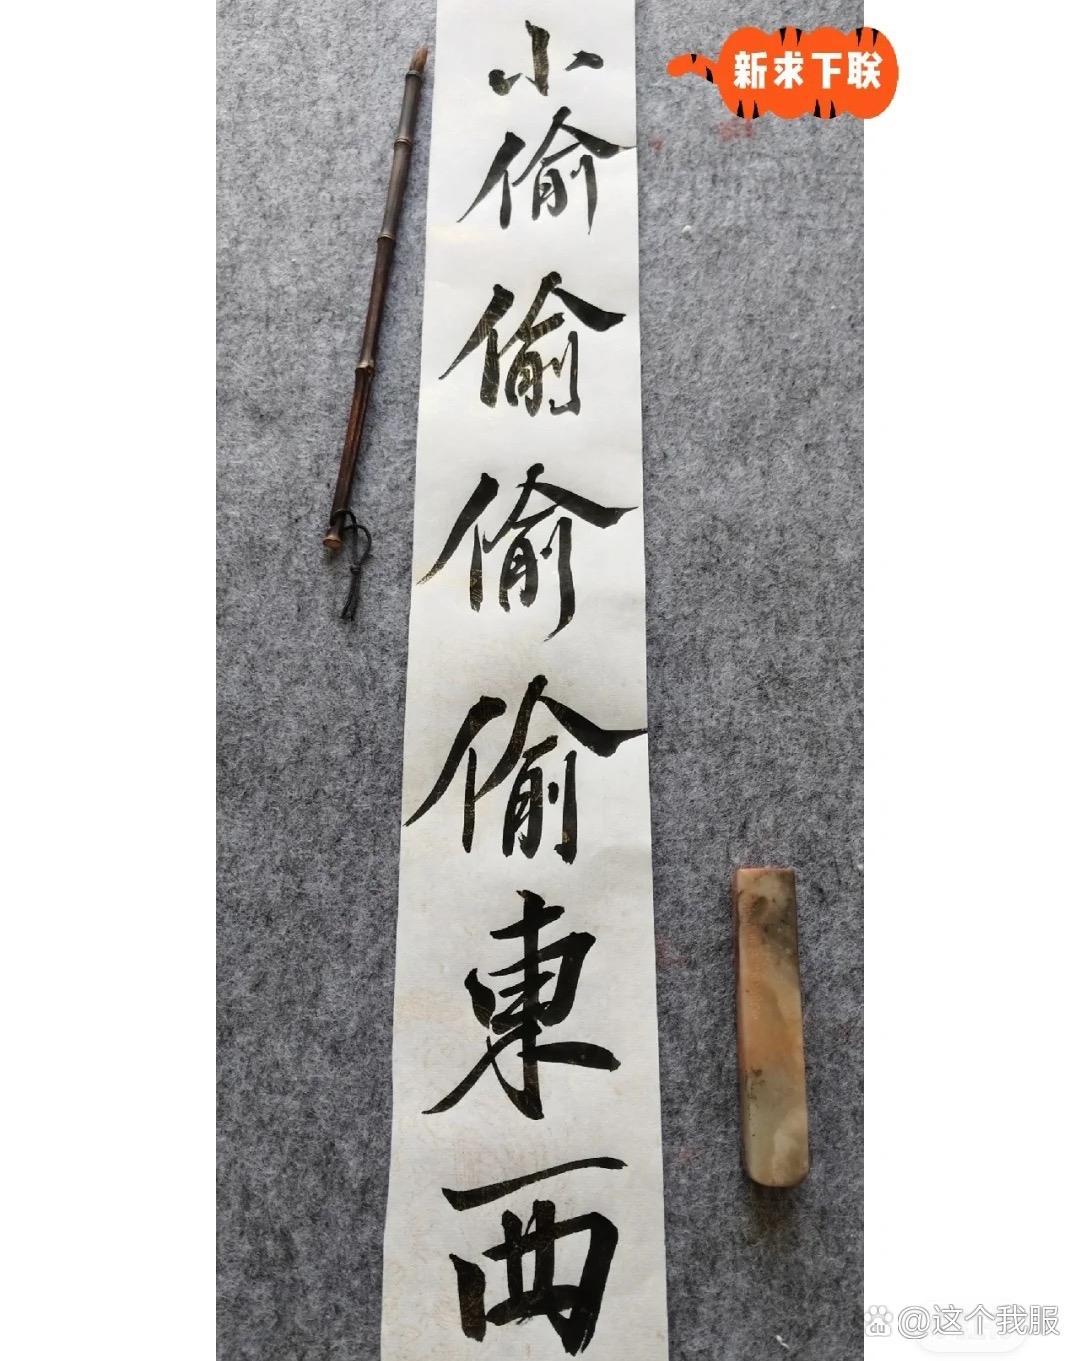 新求下联
小偷偷偷偷東西
@这个我服